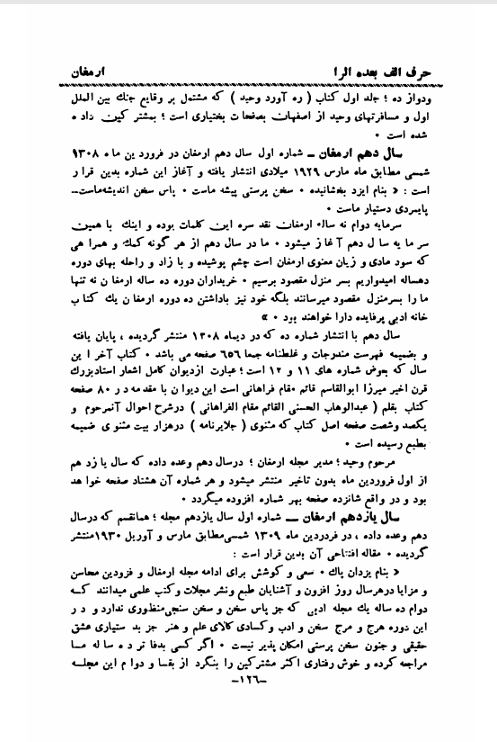 حرف الف بعده الرا
ارمغان
ودوازده ؛ جلد اول کتاب ( ره آورد وحید ) که مشتمل بر وقایع جنك بین الملل
اول و مسافرتهای وحید از اصفهان بصفحات بختیاری است ؛ بمشترکین داده
شده است ٠
سال دهم ارمغان ــ شماره اول سال دهم ارمغان در فروردین ماه ۱۳۰۸
شمسی مطابق ماه مارس ۱۹۲۹ میلادی انتشار یافته و آغاز این شماره بدین قرار
است : « بنام ایزد بخشانیده ٠ سخن پرستی پیشه ماست ٠ پاس سخن اندیشهماست ــ
پایمردی دستیار ماست ٠
سرمایه دوام نه ساله ارمغان نقد سره این کلمات بوده و اینك با همین
سرمایه سال دهم آغاز میشود ٠ ما در سال دهم از هر گونه کمك و همراهی
که سود مادی و زیان معنوی ارمغان است چشم پوشیده و با زاد و راحله بهای دوره
دهساله امیدواریم بسر منزل مقصود برسیم ٠ خریداران دوره ده ساله ارمغان نه تنها
ما را بسرمنزل مقصود میرسانند بلکه خود نیز باداشتن ده دوره ارمغان یك کتاب
خانه ادبی پرفایده دارا خواهند بود ٠ »
سال دهم با انتشار شماره ده که در دیماه ۱۳۰۸ منتشر گردیده ، پایان یافته
و بضمیمه فهرست مندرجات و غلطنامه جمعا ۶۵۶ صفحه می باشد ٠ کتاب آخر این
سال که بعوض شماره های ۱۱ و ۱۲ است ؛ عبارت ازدیوان کامل اشعار استادبزرك
قرن اخیر میرزا ابوالقاسم قائم مقام فراهانی است این دیوان با مقدمه در ۸۰ صفحه
کتاب بقلم ( عبدالوهاب الحسنی القائم مقام الفراهانی ) درشرح احوال آنمرحوم و
یکصد وشصت صفحه اصل کتاب که مثنوی ( جلایرنامه ) درهزار بیت مثنوی ضمیمه
بطبع رسیده است ٠
مرحوم وحید ؛ مدیر مجله ارمغان ؛ درسال دهم وعده داده که سال یازدهم
از اول فروردین ماه بدون تاخیر منتشر میشود و هر شماره آن هشتاد صفحه خواهد
بود و در واقع شانزده صفحه بهر شماره افزوده میگردد ٠
سال یازدهم ارمغان ــ شماره اول سال یازدهم مجله ؛ همانقسم که درسال
دهم وعده داده ، در فردردین ماه ۱۳۰۹ شمسیمطابق مارس و آوریل ۱۹۳۰منتشر
گردیده ٠ مقاله افتتاحی آن بدین قرار است :
« بنام یزدان پاك ٠ سعی و کوشش برای ادامه مجله ارمغال و فزودین محاسن
و مزایا درهرسال روز افزون و آشنایان طبع ونشر مجلات وکتب علمی میدانند که
دوام ده ساله یك مجله ادبی که جز پاس سخن و سخن سنجیمنظوری ندارد و در
این دوره هرج و مرج سخن و ادب وکسادی کالای علم و هنر جز بدستیاری عشق
حقیقی و جنون سخن پرستی امکان پذیر نیست ٠ اگر کسی بدفاتر ده ساله ما
مراجعه کرده و خوش رفتاری اکثر مشترکین را بنگرد از بقا و دوام این مجله
–۱۲۶–